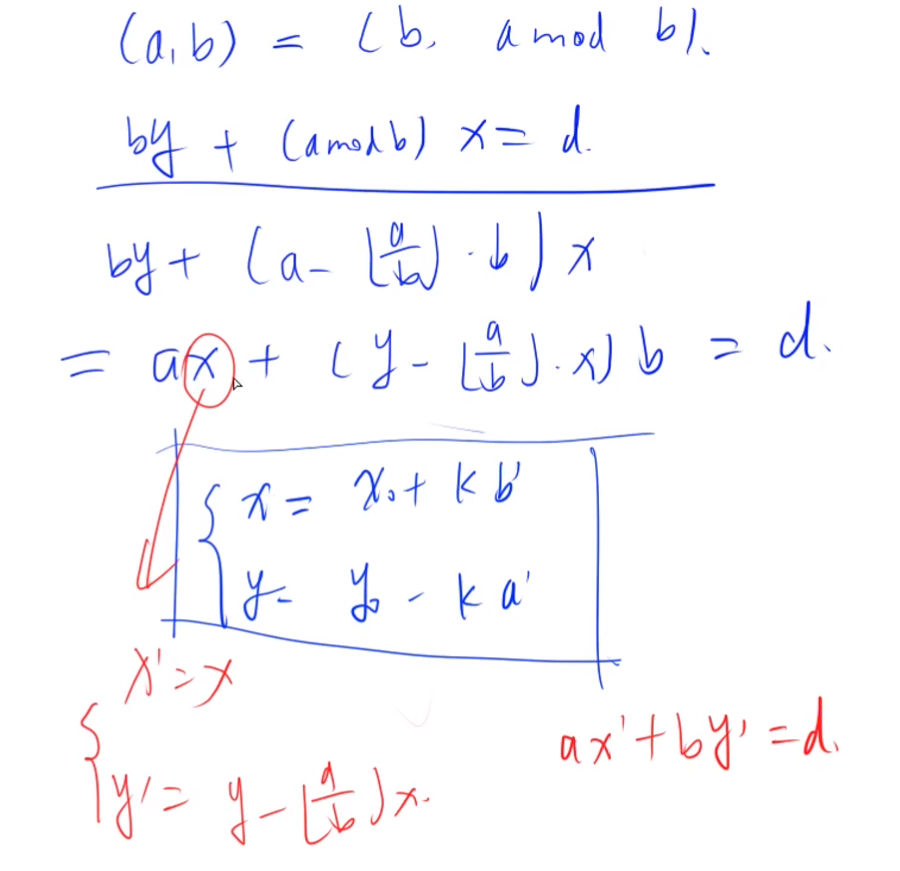 (a, b) = (b, a mod b).
by + (a mod b) x = d.
by + (a - ⌊a/b⌋ · b) x
= ax + (y - ⌊a/b⌋ · x) b = d.
{ x = x₀ + k b'
y = y₀ - k a'
{ x' = x
y' = y - ⌊a/b⌋ x.
ax' + by' = d.